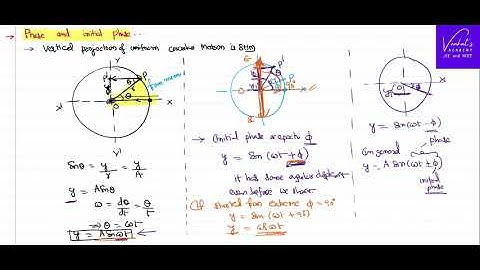 → Phase and initial phase..
→ Vertical projection of uniform circular motion is SHM
Sinθ = y/r = y/A
y = A sinθ
ω = dθ/dt = θ/t
⇒ θ = ωt
y = A sin ωt
→ Initial phase or epoch: ϕ
y = Sin (ωt + ϕ)
it has some angular displ
even before we start
If started from extreme ϕ = 90°
y = Sin (ωt + 90)
y = cos ωt
y = Sin (ωt − ϕ)
phase
In general
y = A Sin (ωt ± ϕ)
initial phase
Venkat's
ACADEMY
JEE and NEET